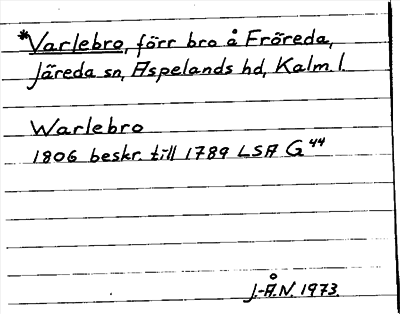 *Varlebro, förr bro å Fröreda,
Järeda sn, Aspelands hd, Kalm. l.
Warlebro
1806 beskr. till 1789 LSA G 44
J.-Å.N. 1973.